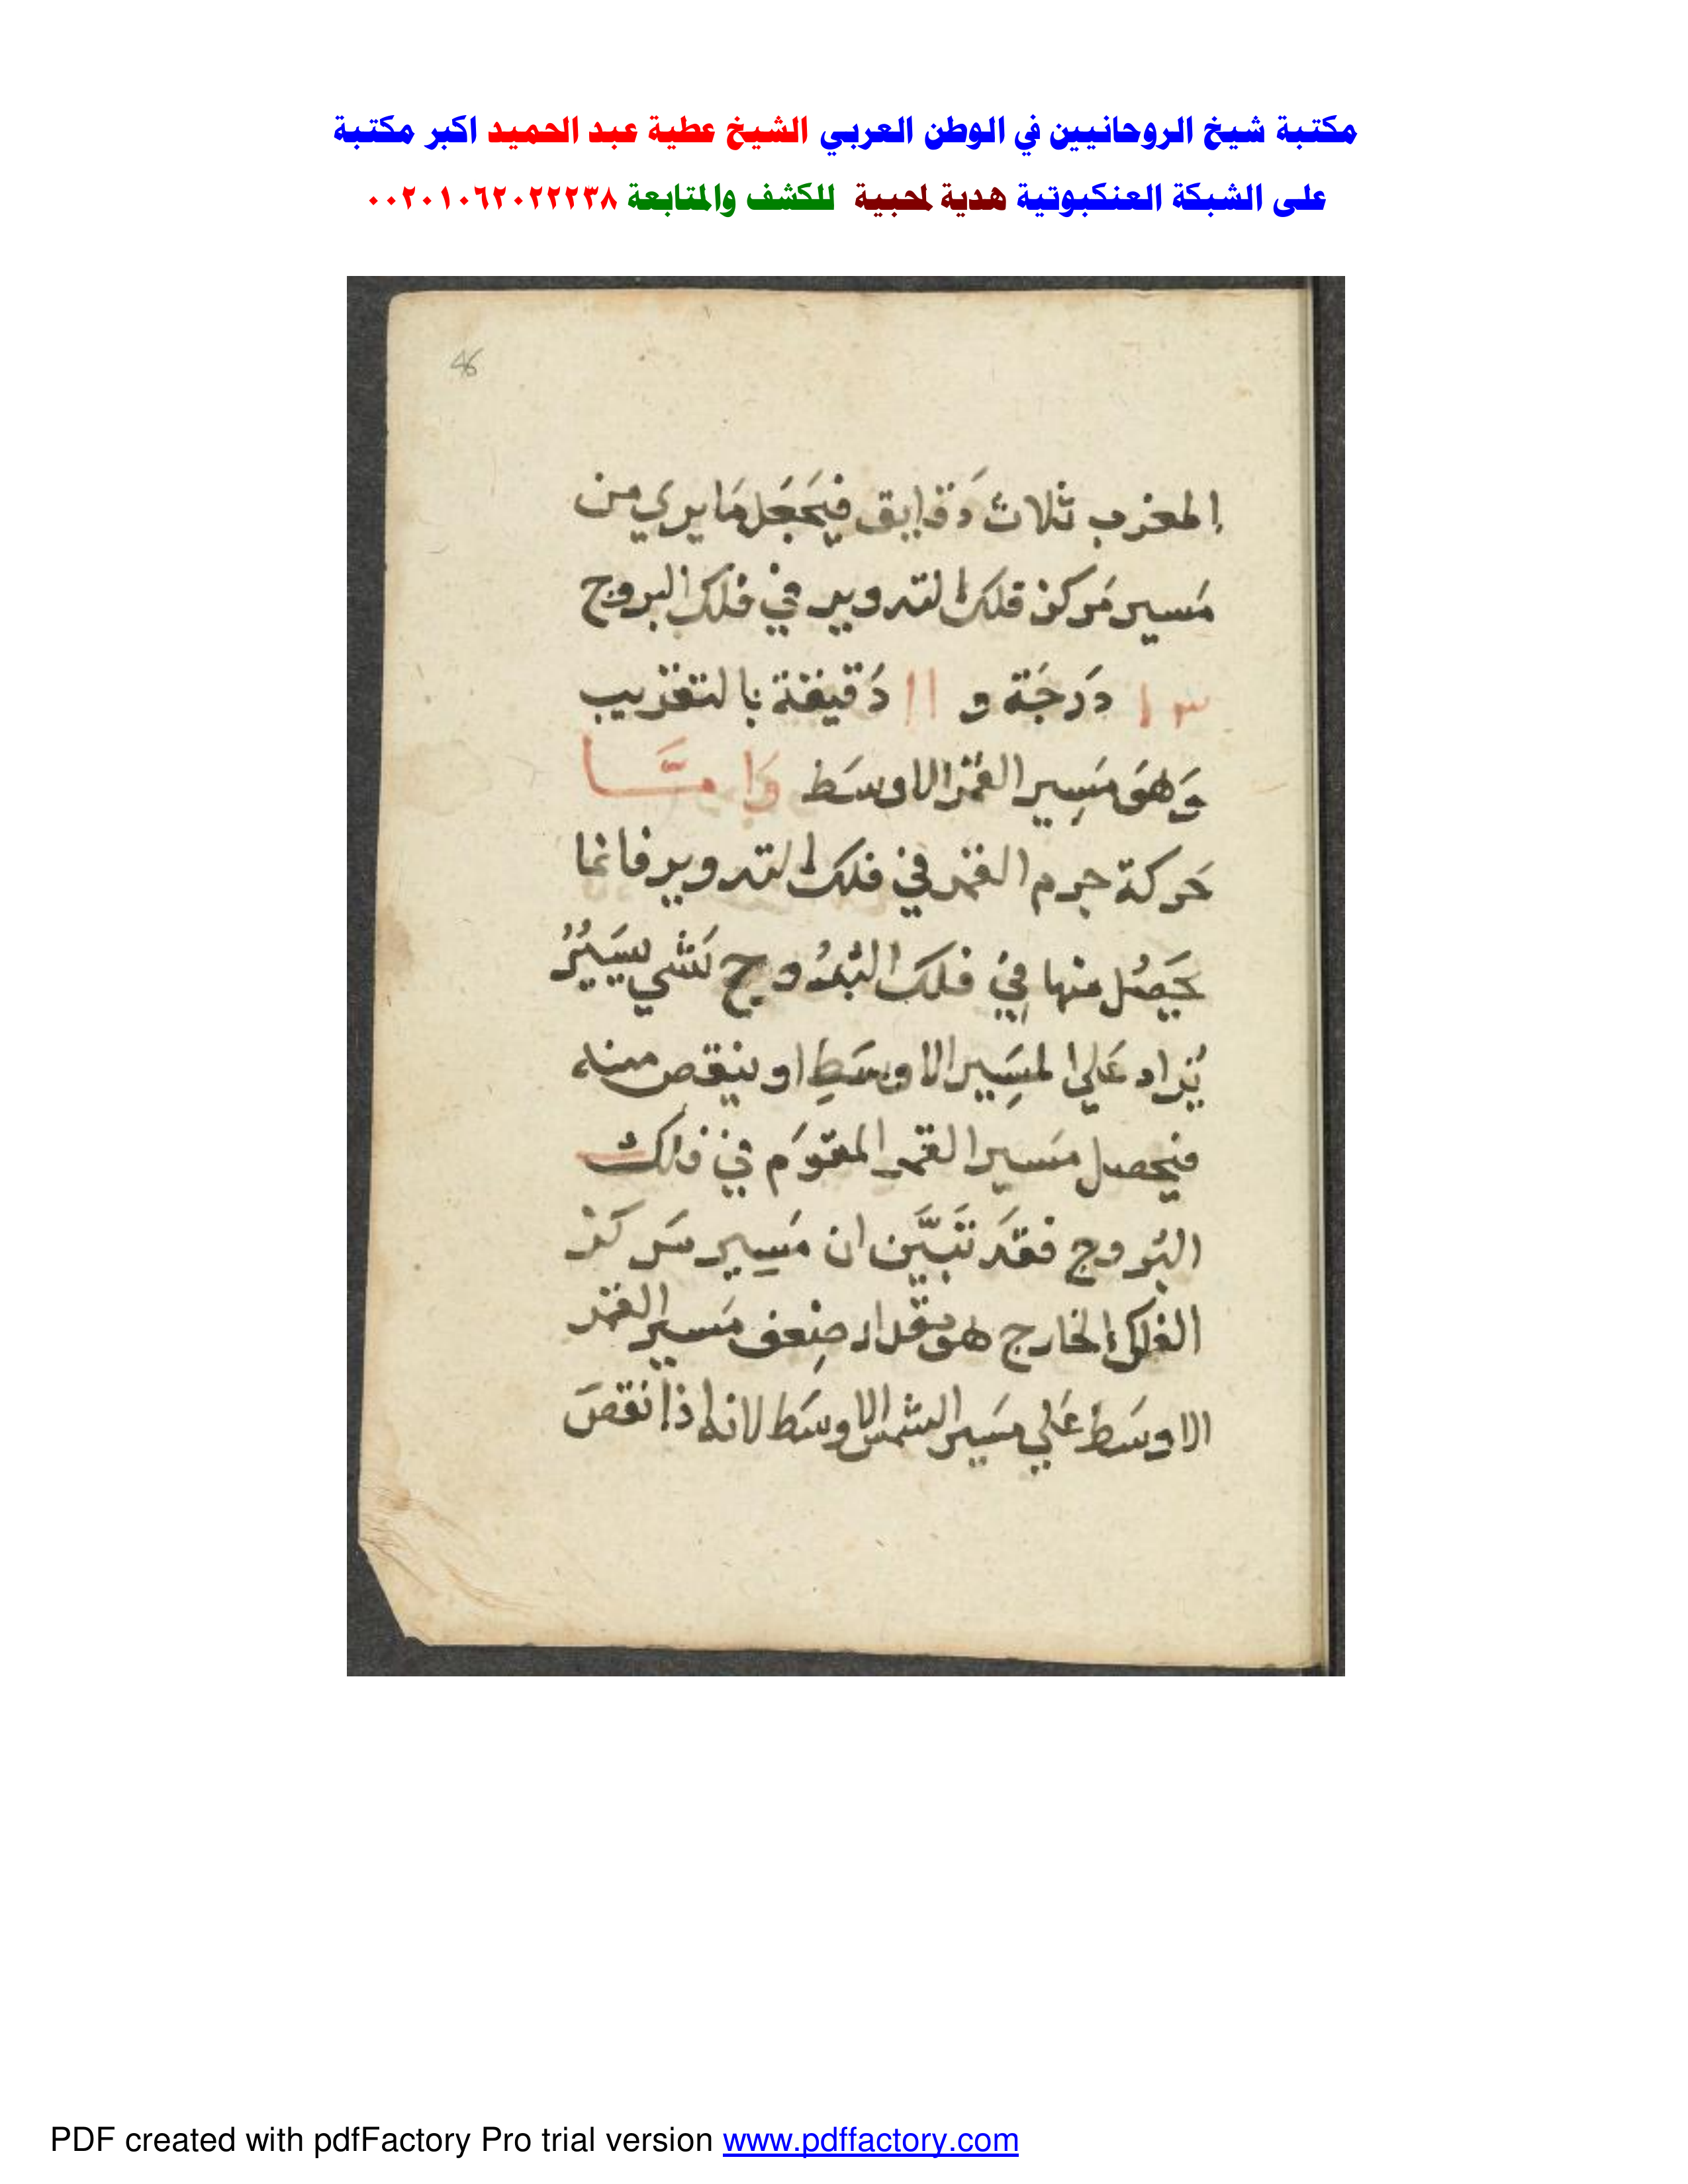 مكتبة شيخ الروحانيين في الوطن العربي الشيخ عطية عبد الحميد اكبر مكتبة
على الشبكة العنكبوتية هدية لمحبية للكشف والمتابعة ٠٠٢٠١٠٦٢٠٢٢٢٣٨
46
المغرب ثلاث دَقايق فيَجعَل مَا يري من
مَسير مَركز فلك التدوير في فلك البروج
١٣ دَرجَة و ١١ دَقيقة بالتقريب
وَهوَ مسِير القمر الاوسَط وَامَّا
حَركة جرم القمر في فلك التدوير فانما
يَحصُل منها فِي فلك البُروج كشي يسَيرُ
يُزاد عَلي المسِير الاوسَطِ او ينقص منه
فيحصل مَسير القمر المقوَم في فلك
البُروج فقَد تَبَيَّن ان مَسِير مَركز
الفلك الخارج هو مقدار ضِعف مَسير القمر
الاوسَط عَلي مسَير الشمس الاوسَط لانه اذا نقصَ
PDF created with pdfFactory Pro trial version www.pdffactory.com